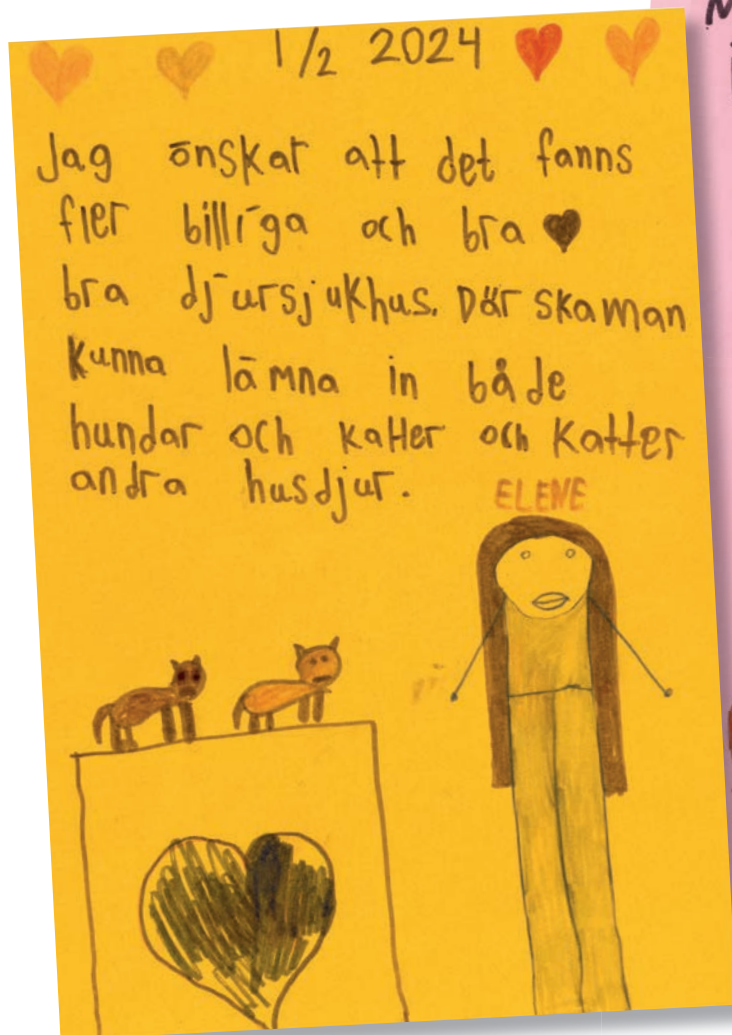 1/2 2024
Jag önskar att det fanns
fler billiga och bra
bra djursjukhus. Där ska man
kunna lämna in både
hundar och katter och katter
andra husdjur.
ELENE